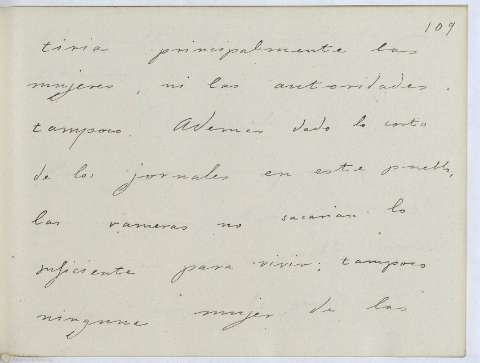 109
tiria principalmente las
mujeres, ni las autoridades,
tampoco. Además dado lo corto
de los jornales en este pueblo,
las rameras no sacarian lo
suficiente para vivir; tampoco
ninguna mujer de las